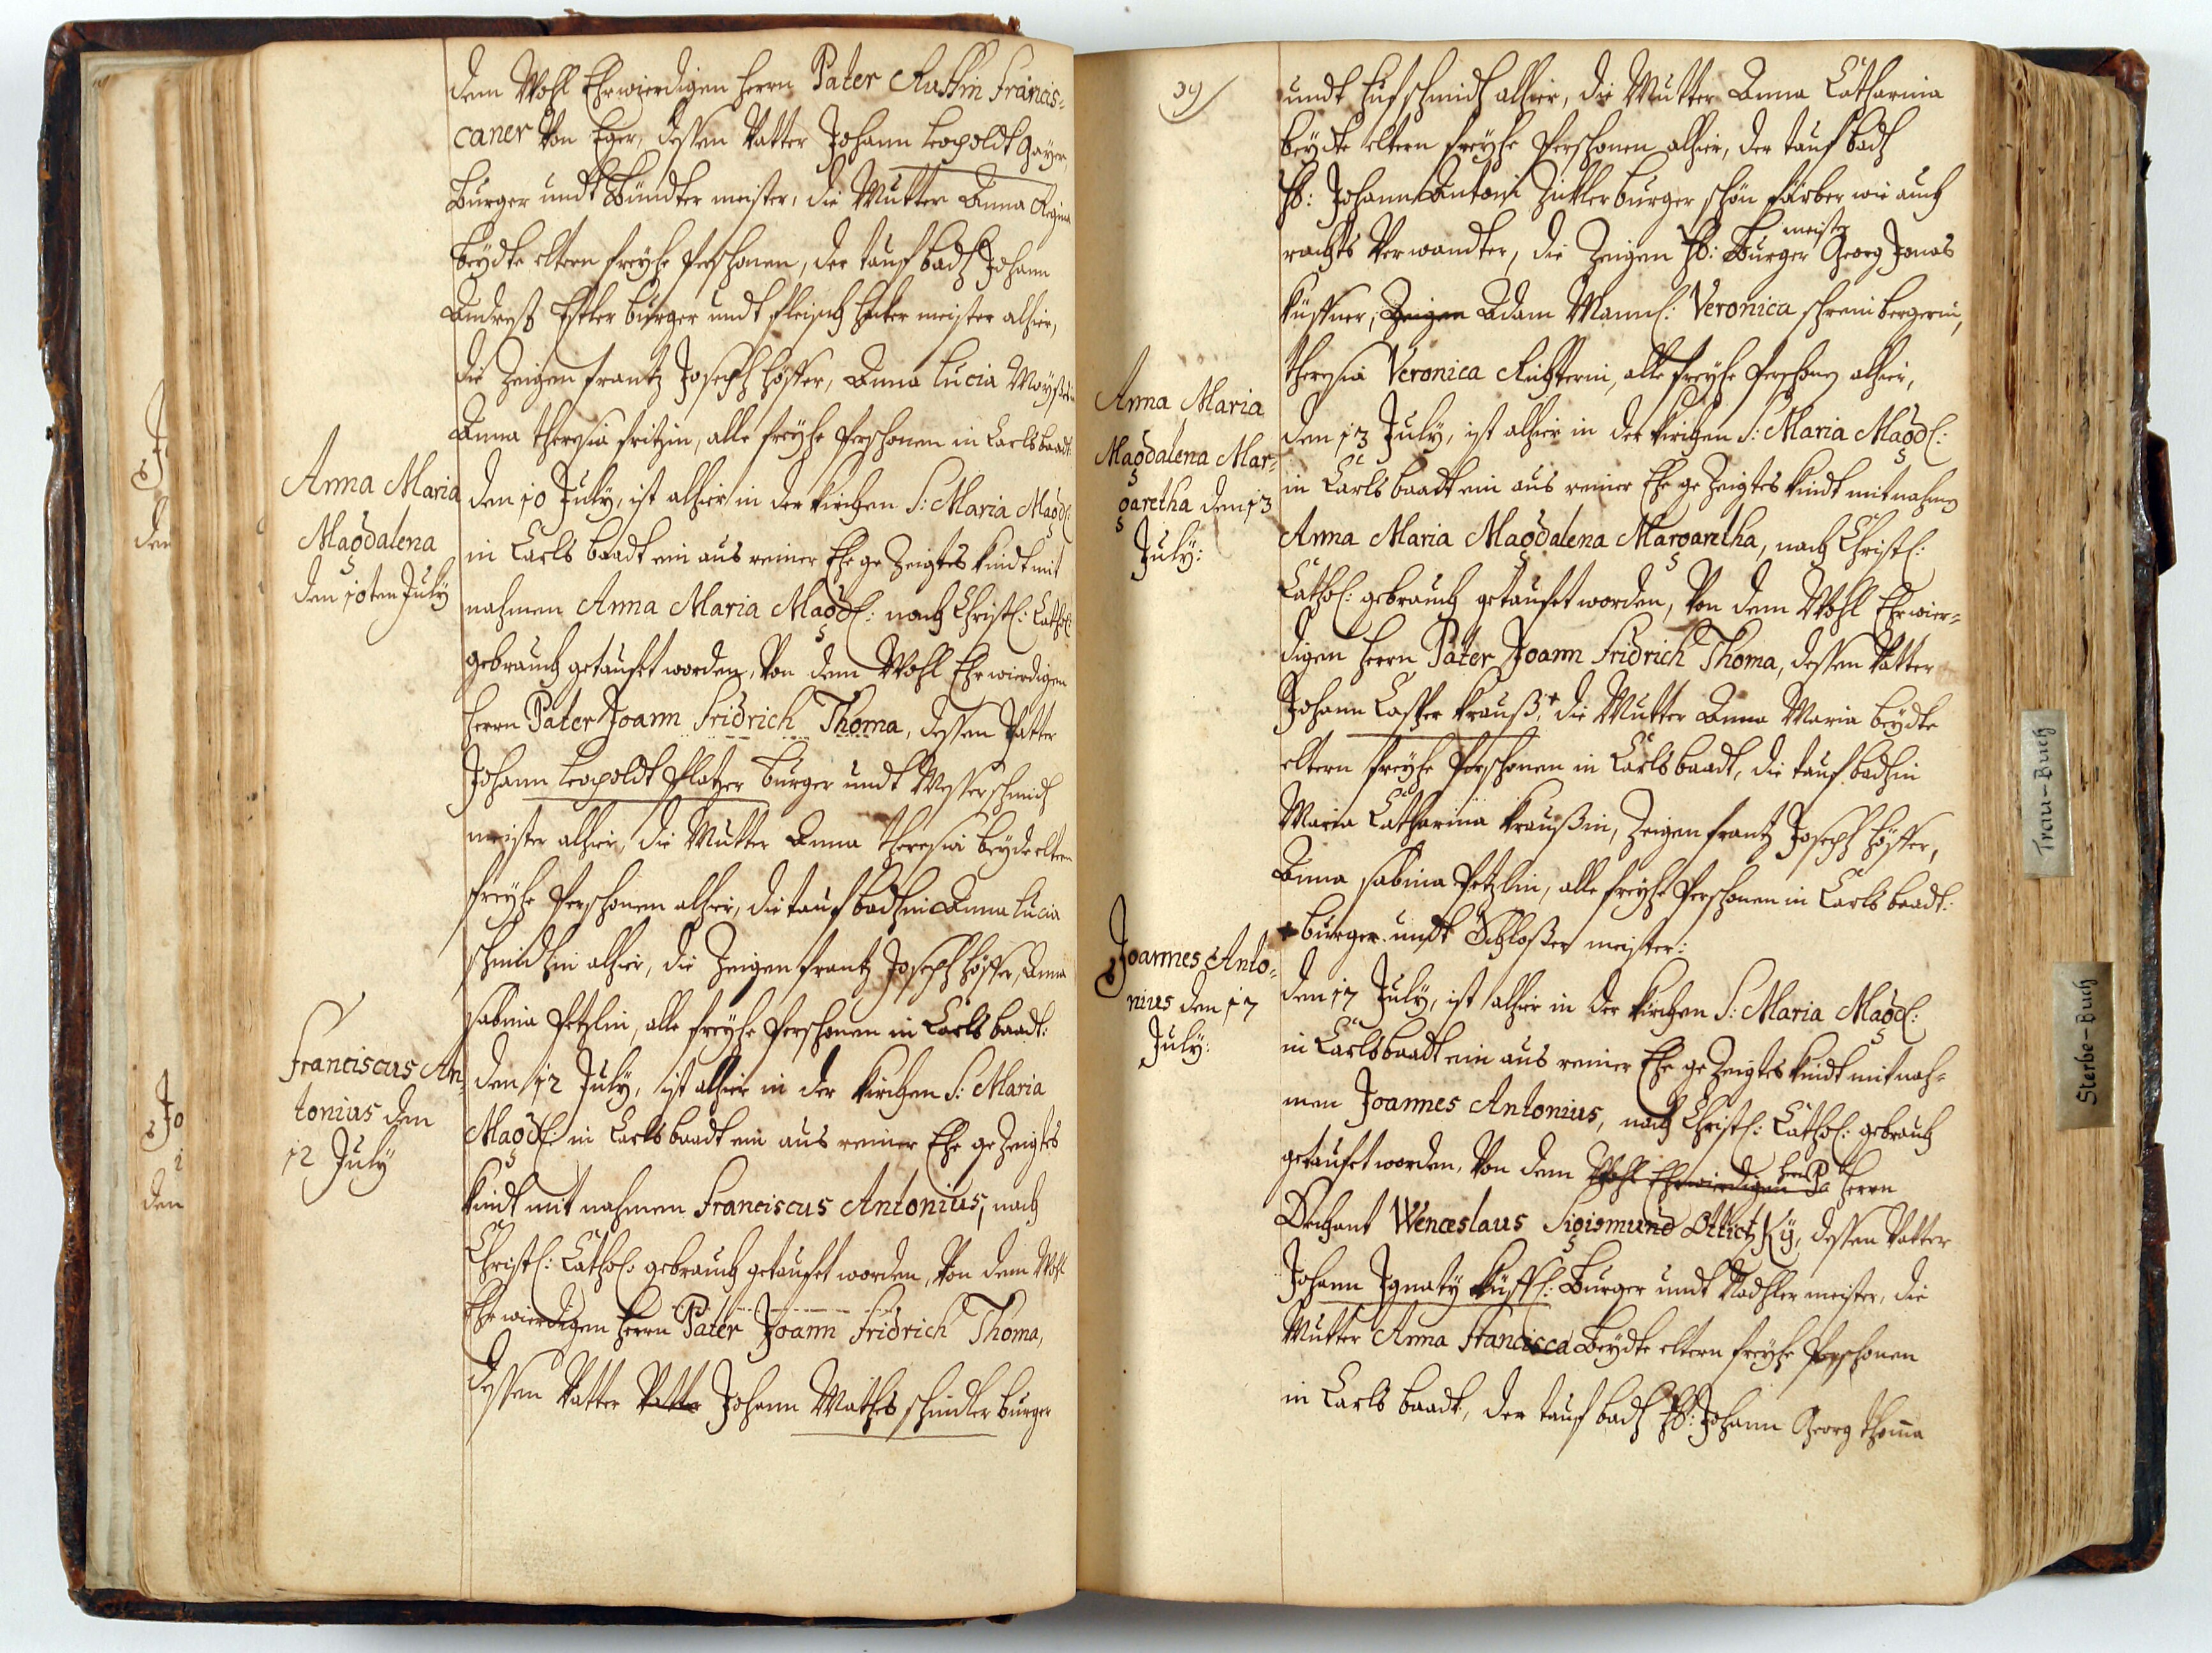 dem Wohl Ehrwierdigen Herrn Pater Francis=
caner Von Eger, dessen Vatter Johann Leopoldt Gayer,
Burger undt Bündter meister, die Mutter Anna Regina
beydte eltern freyhe Perschonen, der tauf badh Johann
Andreß Eßler burger undt fleisch hakker meister alhier,
die Zeigen frantz Joseph Höffer, Anna Lucia
Anna theresia fritzin, alle freyhe Perschonen in Carls baadt:
Anna Maria
Magdalena
den 10ten July
den 10 July, ist alhier in der Kirchen S: Maria Magdl:
in Carls baadt ein aus reiner Ehe ge Zeigtes Kindt mit
nahmen Anna Maria Magdl: nach Christl: Cathol:
gebrauch getaufet worden, Von dem Wohl Ehrwierdigen
Herrn Pater Joann Fridrich Thoma, dessen Vatter
Johann Leopoldt Platzer burger undt Messerschmidh
meister alhier, die Mutter Anna theresia beyde eltern
freyhe Perschonen alhier, die tauf badhin Anna Lucia
schmidhin alhier, die Zeigen frantz Joseph Höffer, Anna
sabina Petzlin, alle freyhe Perschonen in Carls baadt:
Franciscus An=
tonius den
12 July
den 12 July, ist alhier in der Kirchen S: Maria
Magdl: in Carls baadt ein aus reiner Ehe ge Zeigtes
Kindt mit nahmen Franciscus Antonius, nach
Christl: Cathol: gebrauch getaufet worden, Von dem Wohl
Ehrwierdigen Herrn Pater Joann Fridrich Thoma,
dessen Vatter Vatter Johann Mathes schindler burger
39
undt Hufschmidh alhier, die Mutter Anna Catharina
beydte eltern freyhe Perschonen alhier, der tauf badh
H: Johann Antoni Zikler burger schön färber wie auch
meister
raths Verwandter, die Zeigen H: Burger Georg Jonas
Küffner, Zeigen Adam Mannl: Veronica schreinbergerin,
theresia Veronica Richterin, alle freyhe Perschonen alhier,
Anna Maria
Magdalena Mar=
garetha den 13
July:
den 13 July, ist alhier in der Kirchen S: Maria Magdl:
in Carls baadt ein aus reiner Ehe ge Zeigtes Kindt mit nahmen
Anna Maria Magdalena Margaretha, nach Christl:
Cathol: gebrauch getaufet worden, Von dem Wohl Ehrwier=
digen Herrn Pater Joann Fridrich Thoma, dessen Vatter
Johann Casper Krauß,+ die Mutter Anna Maria beydte
eltern freyhe Perschonen in Carls baadt, die tauf badhin
Maria Catharina Kraußin, Zeigen frantz Joseph Höffer,
Anna sabina Petzlin, alle freyhe Perschonen in Carls baadt:
+ burger undt Schloßer meister:
Joannes Anto=
nius den 17
July:
den 17 July, ist alhier in der Kirchen S: Maria Magdl:
in Carlsbaadt ein aus reiner Ehe ge Zeigtes Kindt mit nah=
men Joannes Antonius, nach Christl: Cathol: gebrauch
getaufet worden, Von dem Wohl Ehrwierdigen Pa Herrn
Dechant Wenceslaus Sigismund Ottictzky, dessen Vatter
Johann Ignaty Küffl: Burger undt Nadhler meister, die
Mutter Anna Francisca beydte eltern freyhe Perschonen
in Carls baadt, der tauf badh H: Johann Georg thoma
Trau-Buch
Sterbe-Buch